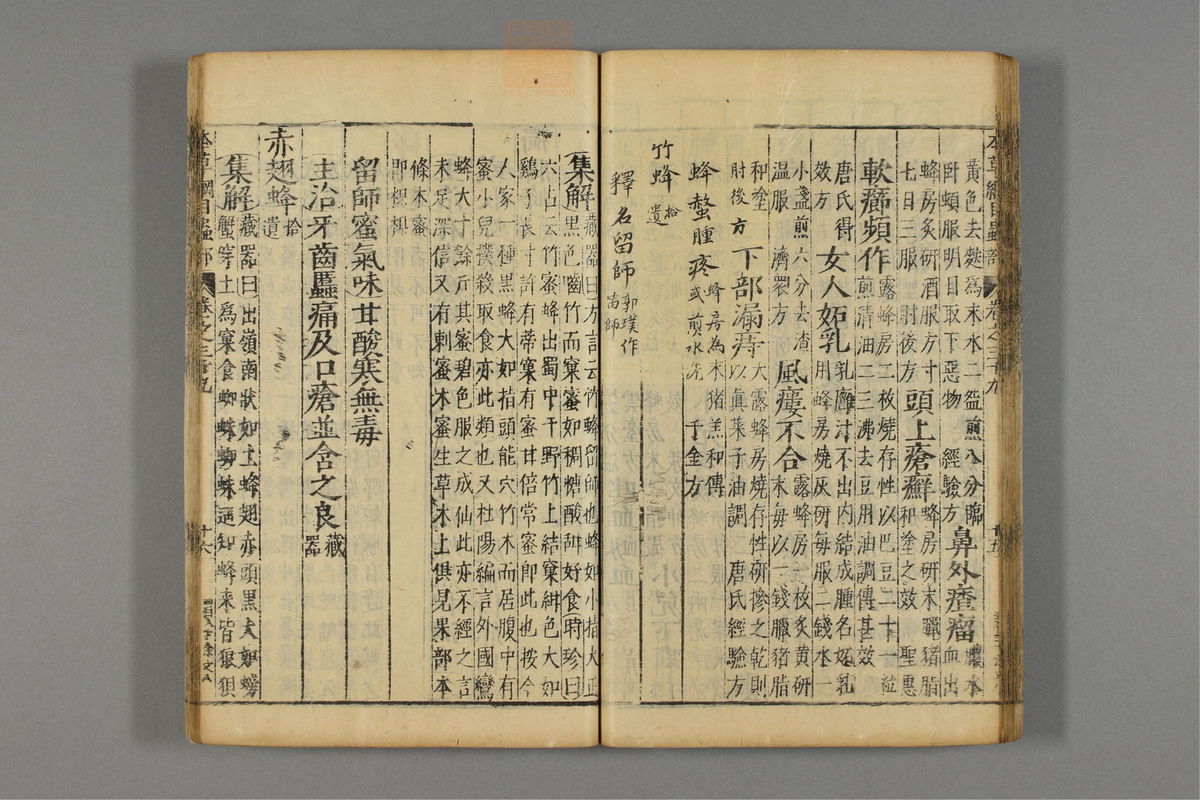 黃色去麩爲末水二盌煎八分臨 鼻外瘡瘤膿水
臥頓服明目取下惡物 經驗方 血出
蜂房炙研酒服方寸 頭上瘡癬蜂房研末臘猪脂
七日三服 肘後方 和塗之效 聖惠
軟癤頻作露蜂房二枚燒存性以巴豆二十一粒
煎清油二三沸去豆用油調傅甚效
唐氏得效方 女人妬乳乳癰汁不出內結成腫名妬乳
用蜂房燒灰研每服二錢水一
小盞煎六分去渣溫服 濟衆方 風瘻不合露蜂房一枚炙黃研
末每以一錢臘猪脂
和塗 肘後方 下部漏痔大露蜂房燒存性研摻之乾則
以眞菜子油調 唐氏經驗方
蜂螫腫疼蜂房為末猪羔和傅
或煎水洗 千金方
竹蜂拾遺
釋名留師郭璞作
笛師
集解藏器曰方言云竹蜂留師也蜂如小指大正
黑色嚙竹而窠蜜如稠糖酸甜好食時珍曰
六占云竹蜜蜂出蜀中于野竹上結窠紺色大如
鷄子長寸許有蒂窠有蜜甘倍常蜜即此也按今
人家一種黑蜂大如指頭能穴竹木而居腹中有
蜜小兒撲殺取食亦此類也又杜陽編言外國鸞
蜂大寸餘斤其蜜碧色服之成仙此亦不經之言
未足深信又有刺蜜木蜜生草木上俱見果部本
條木蜜
即枳椇
留師蜜氣味甘酸寒無毒
主治牙齒䘌痛及口瘡並含之良藏器
赤翅蜂拾遺
集解藏器曰出嶺南狀如土蜂翅赤頭黑大如螃
蟹穿土爲窠食蜘蛛蜘蛛遥知蜂来皆狼狽
本草綱目蟲部 卷之三十九 廿五
本草綱目蟲部 卷之三十九 廿六